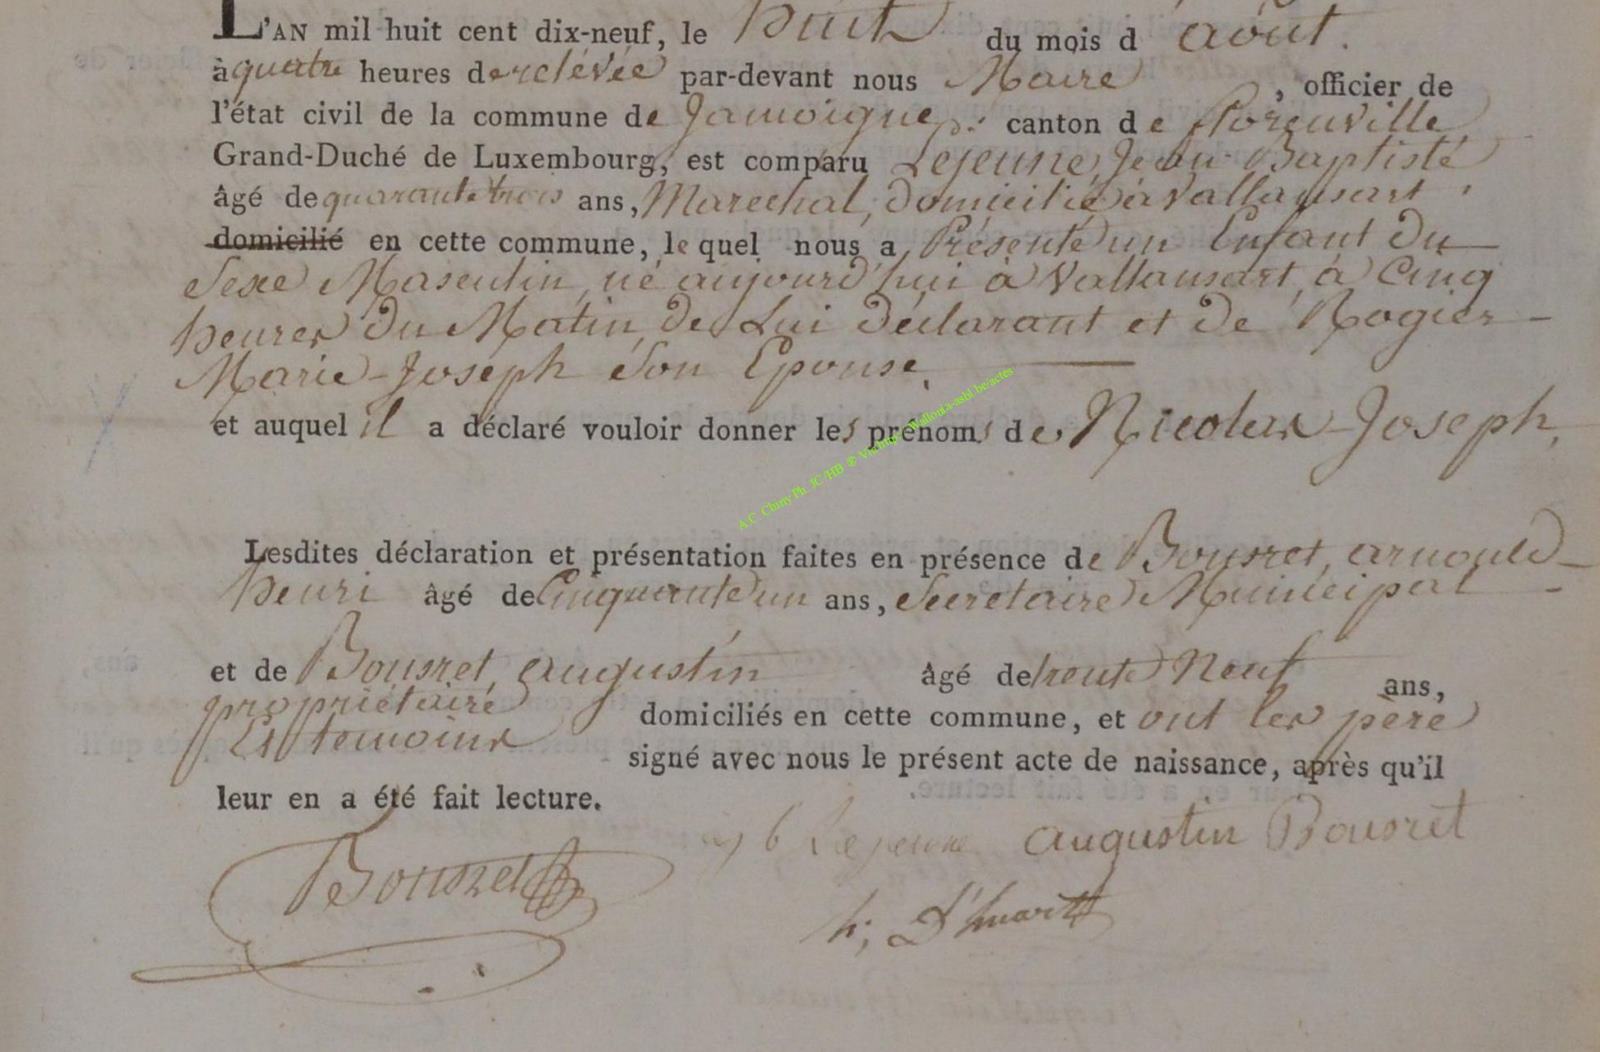 L'AN mil huit cent dix-neuf, le huit du mois d'août.
à quatre heures de relévée par-devant nous Maire, officier de
l'état civil de la commune de Jamoigne, canton de florenville
Grand-Duché de Luxembourg, est comparu Lejeune, Jean-Baptiste
âgé de quarante trois ans, Marechal, domicilié à Vallansart,
domicilié en cette commune, lequel nous a Présenté un Enfant du
Sexe Masculin, né aujourd'hui à Vallansart, à Cinq
heures du Matin, de Lui déclarant et de Rogier
Marie-Joseph Son Epouse,
et auquel il a déclaré vouloir donner les prénoms de Nicolas-Joseph,
Lesdites déclaration et présentation faites en présence de Bousret, arnould
henri âgé de Cinquante un ans, Secretaire Municipal
et de Bousret, augustin âgé de trente Neuf ans,
propriétaire domiciliés en cette commune, et ont les père
Et temoins signé avec nous le présent acte de naissance, après qu'il
leur en a été fait lecture.
Lejeune augustin Bousret
Bousret
h; D'huart
A.C. Chiny Ph. JC/HB ® Visitez : Wallonia-asbl.be/actes